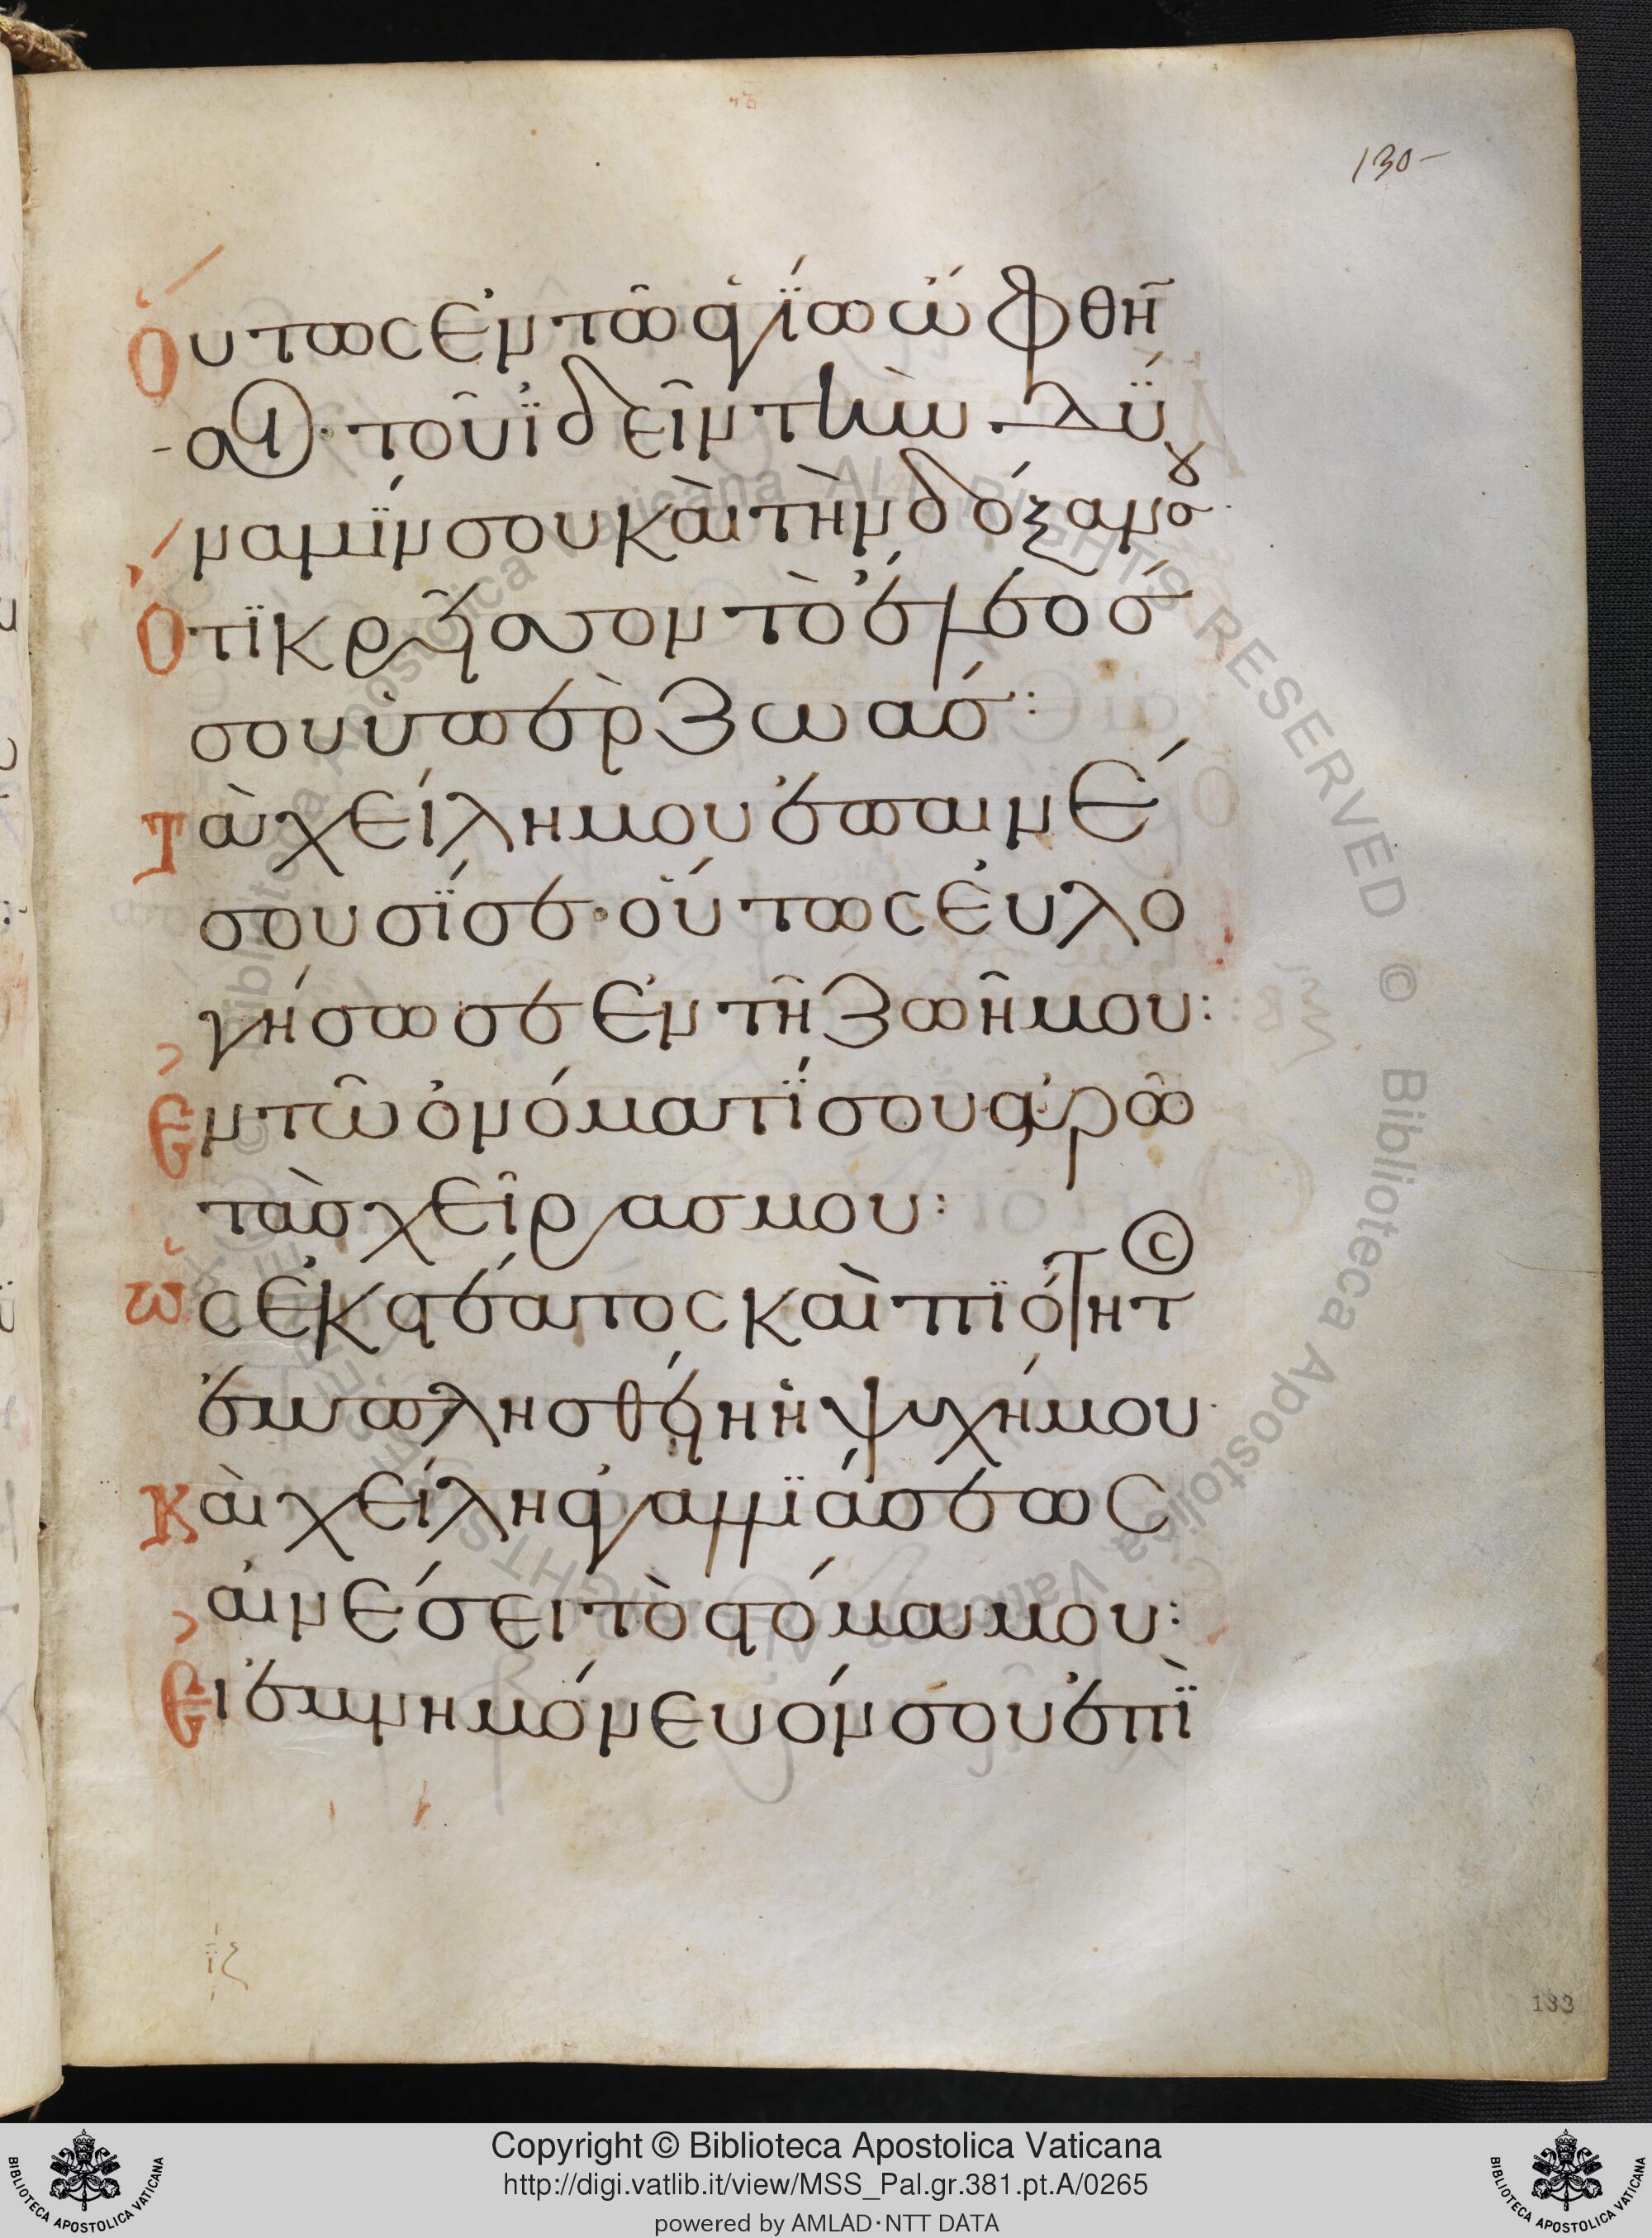 130
Οὕτως ἐν τῶ ἁγίω ὤφθη̄
σοι· τοῦ ἰδεῖν τὴν δύ
ναμίν σου καὶ τὴν δόξαν σου·
Ὅτι κρεῖσσον τὸ ἔλεός
σου ὑπὲρ ζωάς:
Τὰ χείλη μου ἐπαινέ
σουσί σε· οὕτως ἐυλο
γήσω σε ἐν τῆ ζωῆ μου:
Ἐν τῶ ὀνόματί σου ἀρῶ
τὰς χεῖρας μου:
Ὡς ἐκ στέατος καὶ πιότητος
ἐμπλησθείη ἡ ψυχή μου·
Καὶ χείλη ἀγαλλιάσεως
αἰνέσει τὸ στόμα μου:
Εἰ ἐμνημόνευόν σου ἐπὶ
ιζ
133
Copyright © Biblioteca Apostolica Vaticana
http://digi.vatlib.it/view/MSS_Pal.gr.381.pt.A/0265
powered by AMLAD·NTT DATA
BIBLIOTECA APOSTOLICA VATICANA
BIBLIOTECA APOSTOLICA VATICANA